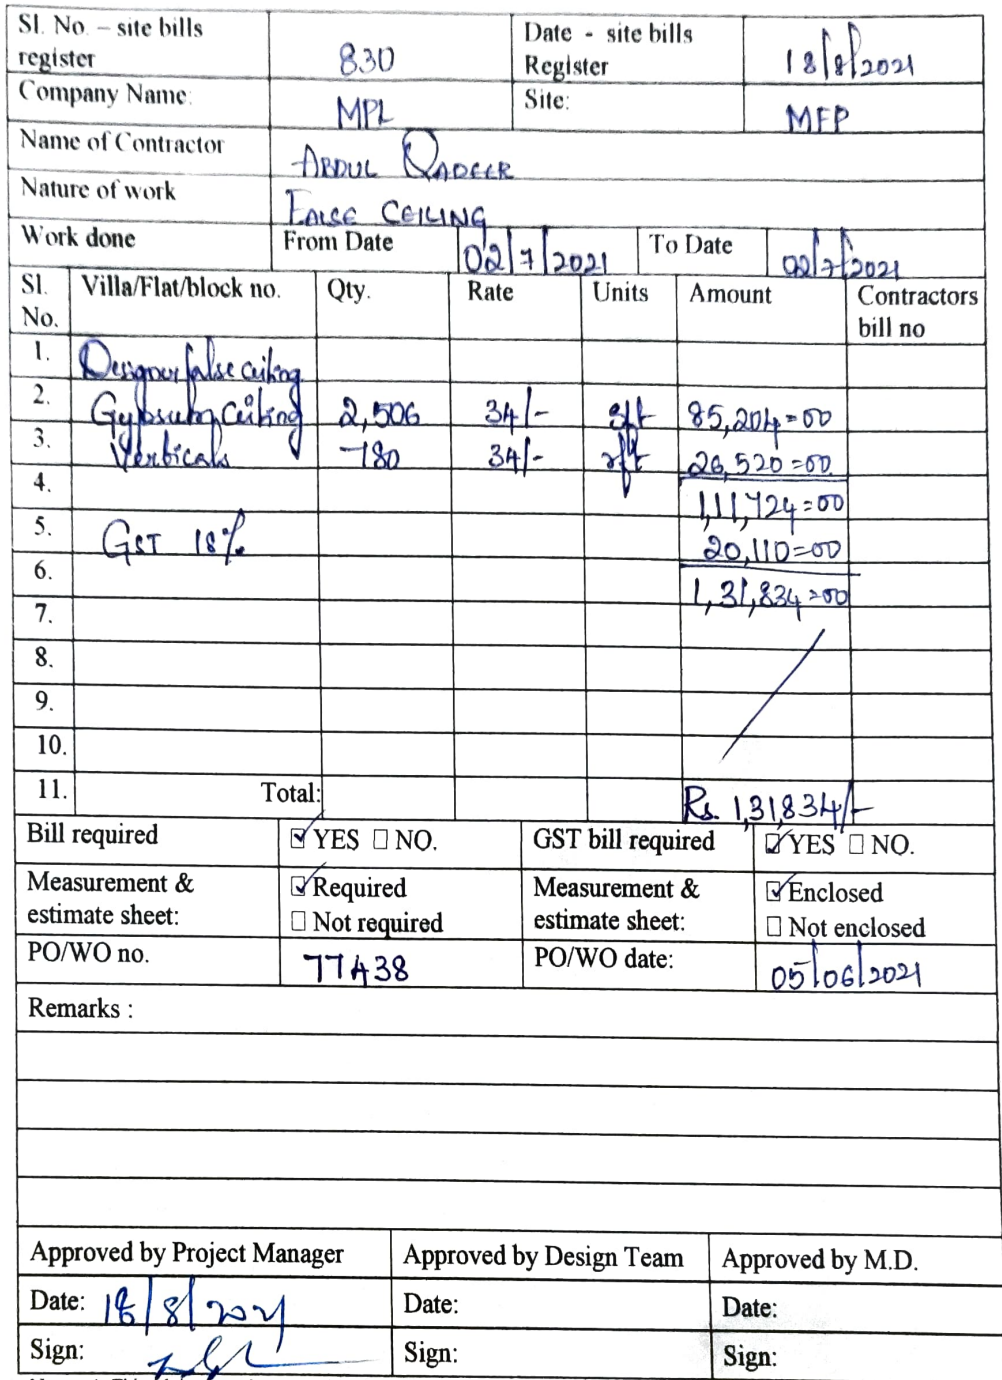 Sl. No. – site bills register 830 Date - site bills Register 18/8/2021
Company Name: MPL Site: MFP
Name of Contractor ABDUL QADEER
Nature of work FALSE CEILING
Work done From Date 02/7/2021 To Date 02/7/2021
Sl. No. Villa/Flat/block no. Qty. Rate Units Amount Contractors bill no
1. Designer false ceiling
2. Gypsum Ceiling 2,506 34/- sft 85,204=00
3. Verticals 780 34/- rft 26,520=00
4. 1,11,724=00
5. GST 18% 20,110=00
6. 1,31,834=00
7.
8.
9.
10.
11. Total: Rs. 1,31,834/-
Bill required ☑ YES ☐ NO. GST bill required ☑ YES ☐ NO.
Measurement & estimate sheet: ☑ Required ☐ Not required Measurement & estimate sheet: ☑ Enclosed ☐ Not enclosed
PO/WO no. 77438 PO/WO date: 05/06/2021
Remarks :
Approved by Project Manager Approved by Design Team Approved by M.D.
Date: 18/8/2021 Date: Date:
Sign: Sign: Sign: